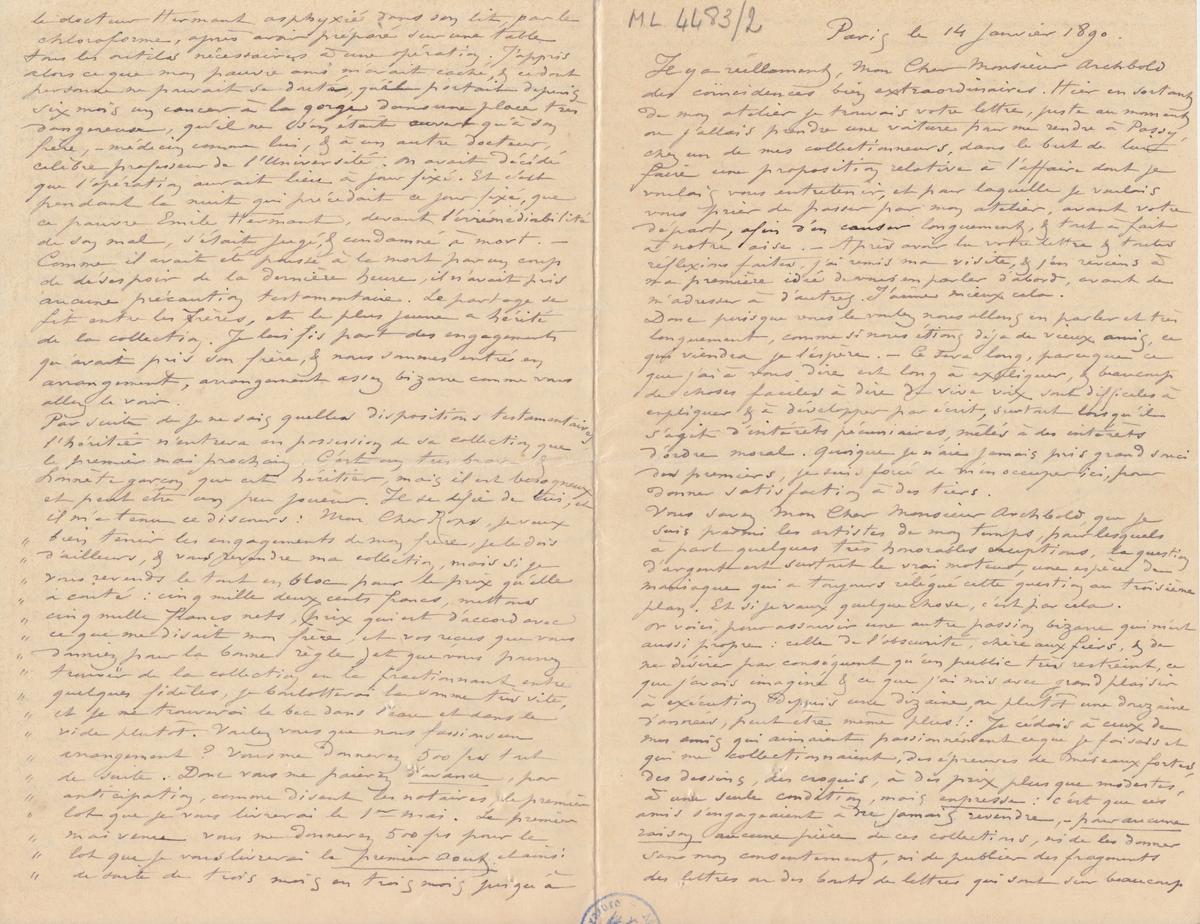 le docteur Hermant asphyxié dans son lit, par le
chloroforme, après avoir préparé sur une table
tous les outils nécessaires à une opération. J'appris
alors ce que mon pauvre ami m'avait caché, & ce dont
personne ne pouvait se douter, qu'il portait depuis
six mois un cancer à la gorge dans une place très
dangereuse, qu'il ne s'en était ouvert qu'à son
frère, – médecin comme lui, & à un autre docteur,
célèbre professeur de l'Université. On avait décidé
que l'opération aurait lieu à jour fixé. Et c'est
pendant la nuit qui précédait ce jour fixé, que
ce pauvre Emile Hermant, devant l'irrémédiabilité
de son mal, s'était jugé, & condamné à mort. –
Comme il avait été poussé à la mort par un coup
de désespoir de la dernière heure, il n'avait pris
aucune précaution testamentaire. Le partage se
fit entre les frères, et le plus jeune a hérité
de la collection. Je lui fis part des engagements
qu'avait pris son frère, & nous sommes entrés en
arrangement, arrangement assez bizarre comme vous
allez le voir.
Par suite de je ne sais quelles dispositions testamentaires,
l'héritier n'entrera en possession de sa collection, que
le premier mai prochain. C'est un très brave &
honnête garçon que cet héritier, mais il est besogneux
et peut être un peu joueur. Il se défie de lui, et
il m'a tenu ce discours : Mon Cher Rops, je veux
" bien tenir les engagements de mon frère, je le dois
" d'ailleurs, & vous revendre ma collection, mais si je
" vous revends le tout en bloc pour le prix qu'elle
" a couté : cinq mille deux cents francs, mettons
" cinq mille francs nets, (prix qui est d'accord avec
" ce que me disait mon frère, et vos reçus que vous
" donniez pour la bonne règle) et que vous pouvez
" trouver de la collection en la fractionnant entre
" quelques fidèles, je boulotterai la somme très vite,
" et je me trouverai le bec dans l'eau et dans le
" vide plutôt. Voulez vous que nous fassions un
" arrangement ? Vous me donnerez 500 frs tout
" de suite. Donc vous me paierez d'avance, par
" anticipation, comme disent les notaires, le premier
" lot que je vous livrerai le 1er mai. Le premier
" mai venu vous me donnerez 500 frs pour le
" lot que je vous livrerai le premier Aout, et ainsi
" de suite de trois mois en trois mois jusqu'à
ML 4483/2
Paris le 14 Janvier 1890.
Il y a réellement, Mon Cher Monsieur Archbold
des coincidences bien extraordinaires. Hier en sortant
de mon atelier je trouvais votre lettre, juste au moment
ou j'allais prendre une voiture pour me rendre à Passy
chez un de mes collectionneurs, dans le but de lui
faire une proposition relative à l'affaire dont je
voulais vous entretenir, et pour laquelle je voulais
vous prier de passer par mon atelier, avant votre
départ, afin d'en causer longuement, & tout à fait
à notre aise. – Après avoir lu votre lettre & toutes
réflexions faites, j'ai remis ma visite, & j'en reviens à
ma première idée de vous en parler d'abord, avant de
m'adresser à d'autres. J'aime mieux cela.
Donc puisque vous le voulez nous allons en parler et très
longuement, comme si nous étions déjà de vieux amis, ce
qui viendra je l'espère. – Ce sera long, parceque ce
que j'ai à vous dire est long à expliquer, & beaucoup
de choses faciles à dire de vive voix sont difficiles à
expliquer & à développer par écrit, surtout lorsqu'il
s'agit d'intérêts pécuniaires, mêlés à des intérêts
d'ordre moral. Quoique je n'aie jamais pris grand souci
des premiers, je suis forcé de m'en occuper ici, pour
donner satisfaction à des tiers.
Vous savez Mon Cher Monsieur Archbold, que je
suis parmi les artistes de mon temps, pour lesquels
à part quelques très honorables exceptions, la question
d'argent est surtout le vrai moteur, une espèce de
maniaque qui a toujours relégué cette question au troisième
plan. Et si je vaux quelque chose, c'est par cela.
Or voici, pour assouvir une autre passion bizarre qui m'est
aussi propre : celle de l'obscurité, chère aux fiers, & de
ne désirer par conséquent qu'un public très restreint, ce
que j'avais imaginé & ce que j'ai mis avec grand plaisir
à exécution depuis une dizaine ou plutôt une douzaine
d'années, peut être même plus! : Je cédais à ceux de
mes amis qui aimaient passionnément ce que je faisais et
qui me collectionnaient, des épreuves de mes eaux fortes,
des dessins, des croquis, à des prix plus que modestes,
à une seule condition, mais expresse : c'est que ces
amis s'engageaient à ne jamais revendre, – pour aucune
raison aucune pièce de ces collections, ni de les donner
sans mon consentement, ni de publier des fragments
des lettres ou des bouts de lettres qui sont sur beaucoup